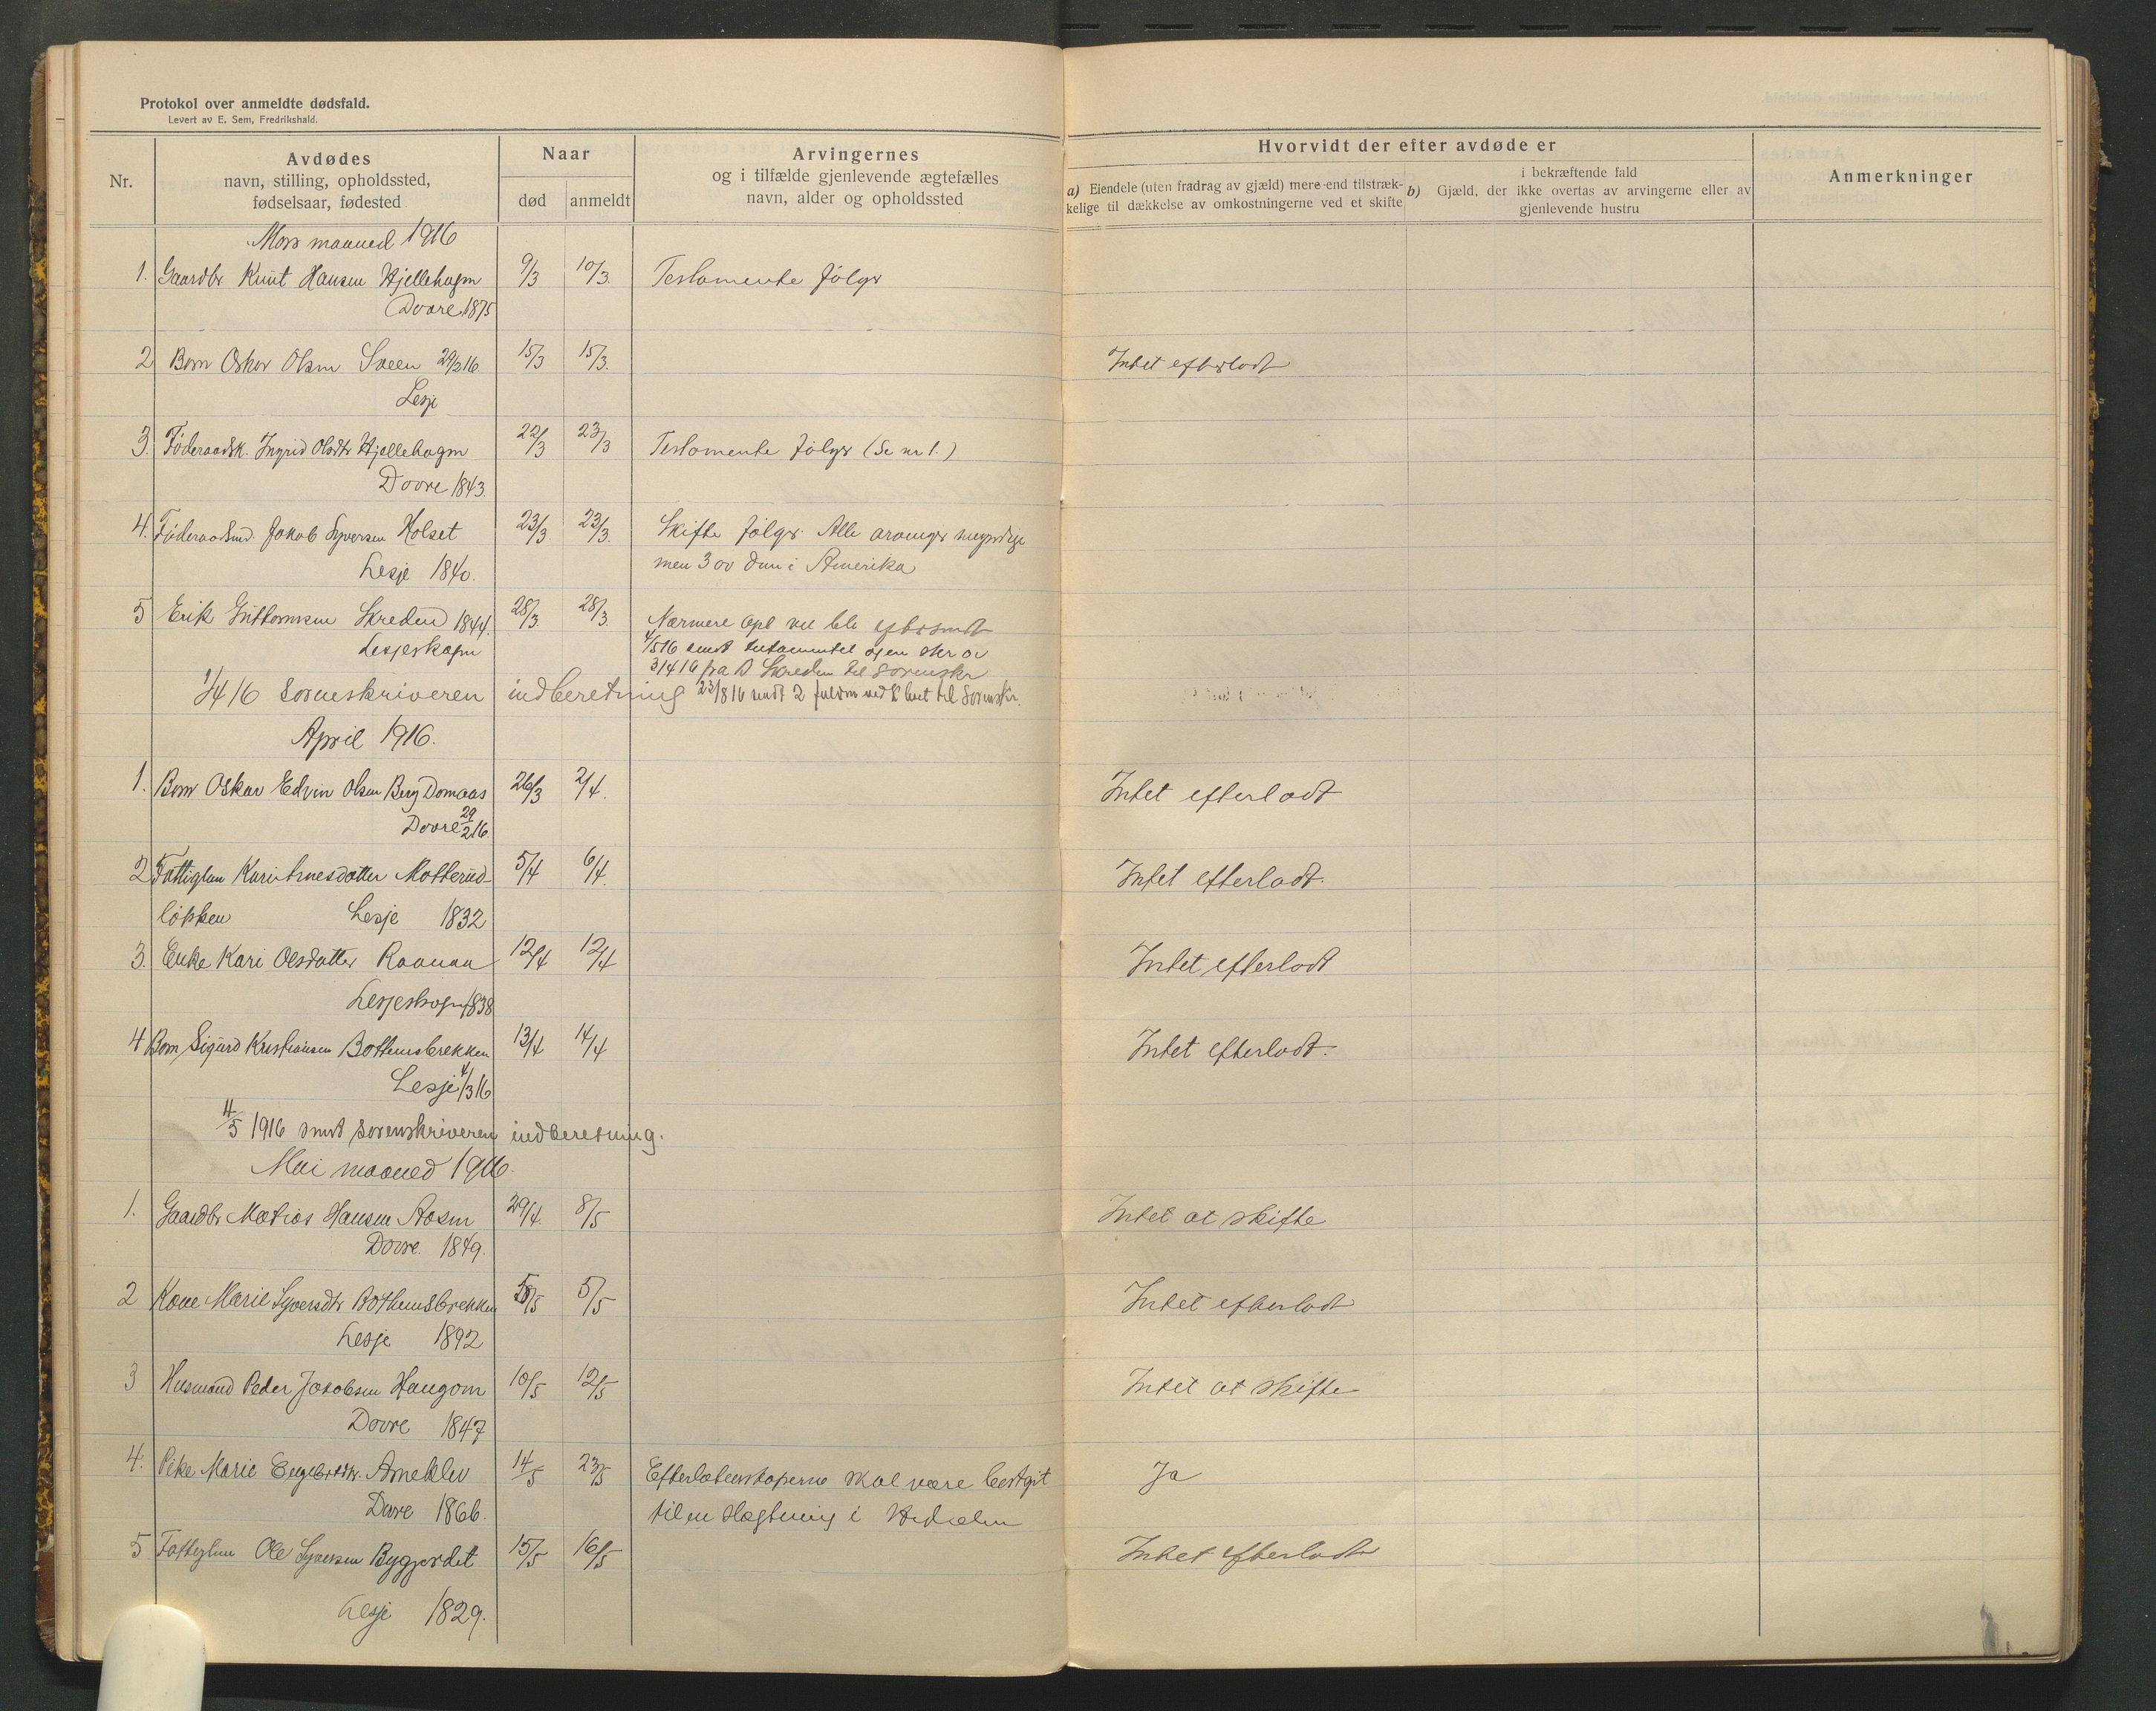 Protokol over anmeldte dødsfald.
Levert av E. Sem, Fredrikshald.
Nr.
Avdødes
navn, stilling, opholdssted,
fødselsaar, fødested
Naar
død
anmeldt
Arvingernes
og i tilfælde gjenlevende ægtefælles
navn, alder og opholdssted
Hvorvidt der efter avdøde er
a) Eiendele (uten fradrag av gjæld) mere end tilstræk-
kelige til dækkelse av omkostningerne ved et skifte
b) Gjæld, der i bekræftende fald
ikke overtas av arvingerne eller av
gjenlevende hustru
Anmerkninger
Mars maaned 1916
1. Gaardbr Knut Hansen Hjellehagen 9/3 10/3. Testamente følger
Dovre 1875
2 Barn Oskar Olsen Sveen 29/2 16. 15/3 15/3. Intet efterlodt
Lesje
3. Føderaadsk. Ingrid Olsdtr Hjellehagen 22/3 23/3 Testamente følger (Se nr 1.)
Dovre 1843.
4. Føderaadsmd. Jakob Syversen Holset 23/3 23/3. Skifte følger. Alle arvinger myndige
Lesje 1840. men 3 av dem i Amerika
5 Erik Guttormsen Skreden 1844. 28/3. 28/3. Nærmere opl vil bli eftersendt
Lesjeskogen 4/5 16 sendt testamentet
3/4 16 fra Skreden til Sorenskr
1/4 16 Sorenskriveren indberetning 23/8 16 sendt 2 til Sorenskr.
April 1916.
1. Barn Oskar Edvin Olsen Berg Domaas 26/3 2/4. Intet efterladt
Dovre 29/2 16.
2 Fattiglem Kari Arnesdotter Motterud- 5/4 6/4. Intet efterladt.
løkken Lesje 1832
3. Enke Kari Olsdatter Raanaa 12/4 12/4 Intet efterlodt
Lesjeskogen 1838
4 Barn Sigurd Kristiansen Bottemsbrekken 13/4 14/4 Intet efterlodt.
Lesje 4/3 16
4/5 1916 sendt sorenskriveren indberetning.
Mai maaned 1916.
1. Gaardbr Matias Hansen Aasen 29/4. 8/5 Intet at skifte
Dovre. 1849.
2 Kone Marie Syversdtr Bottemsbrekken 5/5 5/5 Intet efterlodt
Lesje 1892
3 Husmand Peder Jakobsen Haugom 10/5 12/5 Intet at skifte
Dovre 1847
4. Pike Marie Engebretsdtr. Arneklev 14/5 23/5 Efterlatenskaperne skal være bortgit Ja
Dovre 1866. til en slægtning i Hedalen
5 Fattiglem Ole Syversen Byggjordet 15/5 16/5 Intet efterlodt
Lesje 1829.